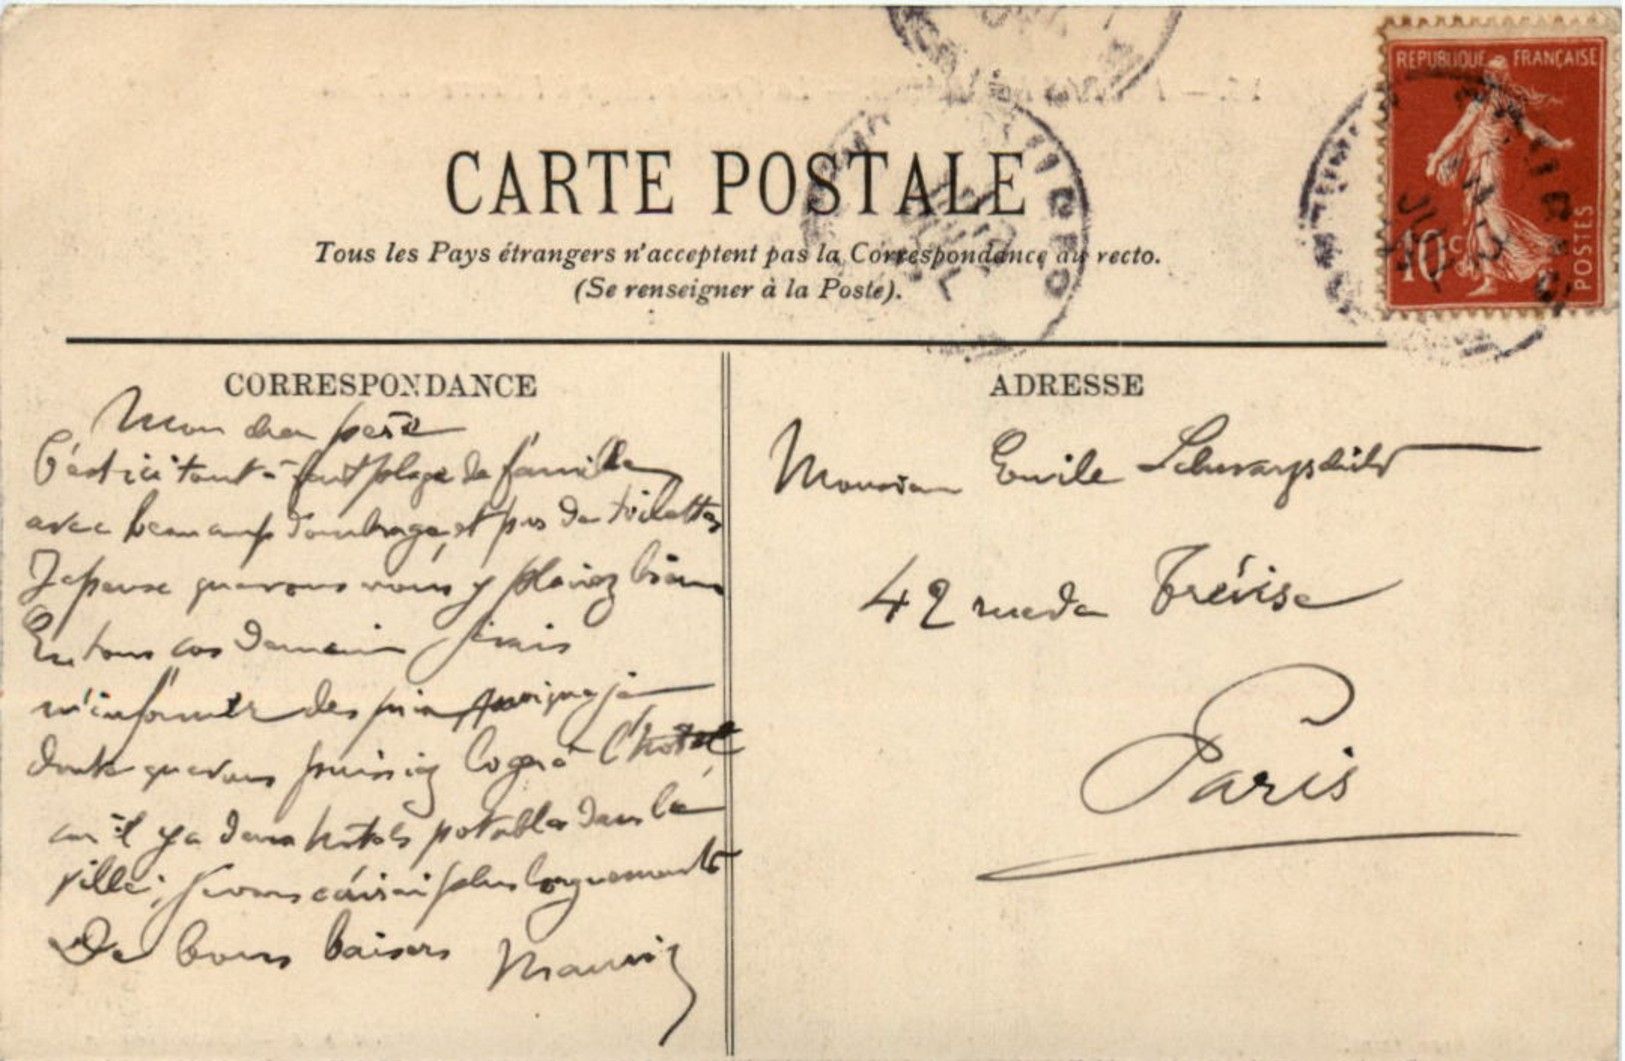 CARTE POSTALE
Tous les Pays étrangers n'acceptent pas la Correspondance au recto.
(Se renseigner à la Poste).
REPUBLIQUE FRANÇAISE
10c
POSTES
CORRESPONDANCE
Mon cher père
C'est ici tout-à-fait plage de famille
avec beaucoup d'ombrage, et pas de toilettes
Je pense que vous vous y plairez bien
En tous cas demain j'irais
m'informer des prix
doute que vous puissiez loger à l'hotel
car il y a deux hotels potables dans la
ville; Je vous écrirai plus longuement
De bons baisers Maurice
ADRESSE
Monsieur Emile Schwarzschild
42 rue de Trévise
Paris